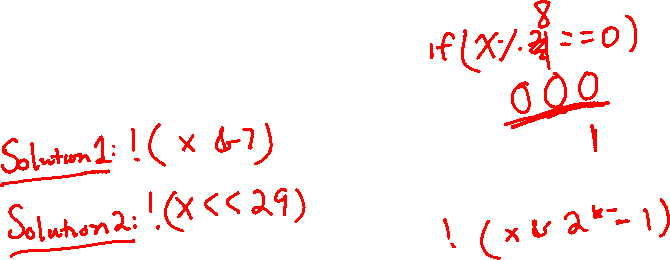 if(x % 8 == 0)
000
1
Solution 1: !(x & 7)
Solution 2: !(x << 29)
! (x & 2^k - 1)